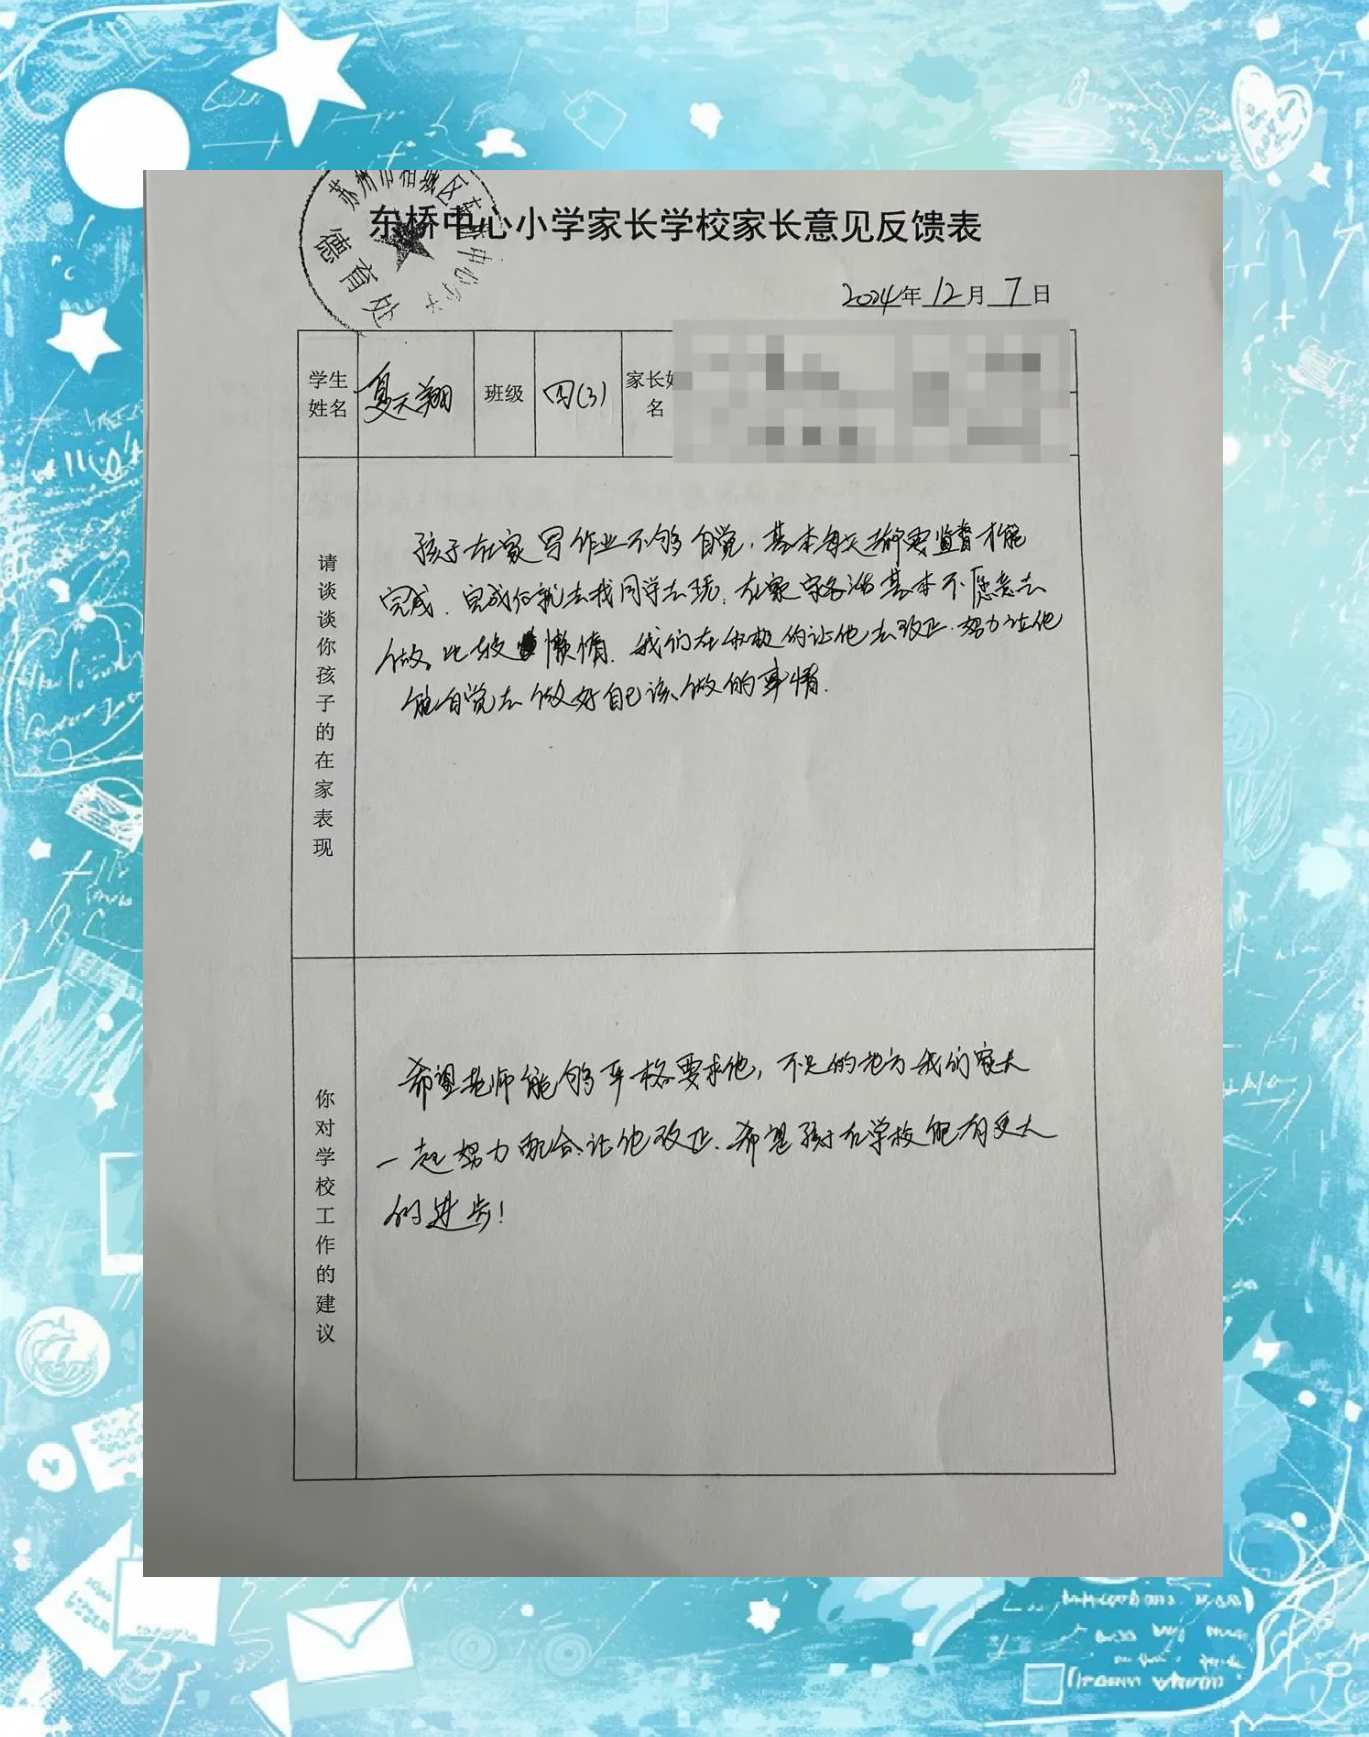 苏州市相城区东桥中心小学
德育处
东桥中心小学家长学校家长意见反馈表
2024年12月7日
学生姓名 夏天翔 班级 四(3) 家长姓名
请谈谈你孩子的在家表现
孩子在家写作业不够自觉，基本每天都要监督才能
完成．完成后就去找同学去玩，在家家务活基本不愿意去
做。比较懒惰．我们在积极的让他去改正．努力让他
能自觉去做好自己该做的事情．
你对学校工作的建议
希望老师能够严格要求他，不足的地方我们家长
一起努力配合让他改正．希望孩子在学校能有更大
的进步！